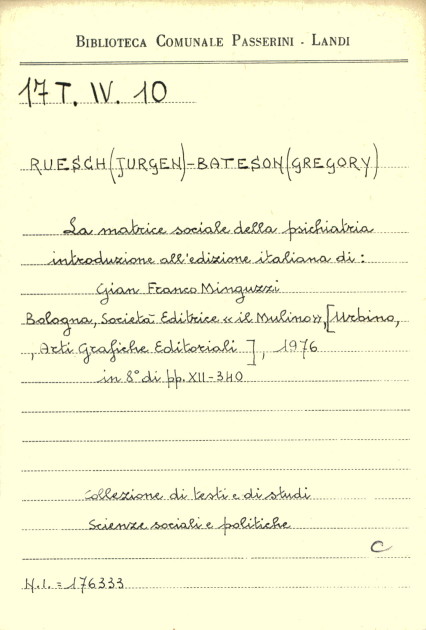 BIBLIOTECA COMUNALE PASSERINI - LANDI
17 T. IV. 10
RUESCH (JURGEN) - BATESON (GREGORY)
La matrice sociale della psichiatria
introduzione all'edizione italiana di :
Gian Franco Minguzzi
Bologna, Società Editrice «il Mulino», [Urbino,
, Arti Grafiche Editoriali ], 1976
in 8° di pp. XII-340
Collezione di testi e di studi
Scienze sociali e politiche
C
N.I. = 176333